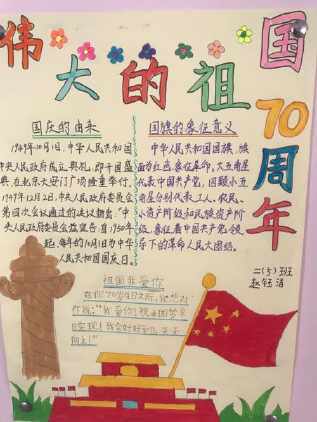 伟大的祖国
70周年
国庆的由来
1949年10月1日,中华人民共和国
中央人民政府成立典礼,即开国盛
典,在北京天安门广场隆重举行。
1949年12月2日,中央人民政府委员会
第四次会议通过的决议
央人民政府委员会宣告:自1950年
起,每年的10月1日为中华
人民共和国国庆日。
国旗的象征意义
中华人民共和国国旗,旗
面为红色,象征革命,大五角星
代表中国共产党,四颗小五
角星分别代表工人、农民、
小资产阶级和民族资产阶
级,象征着中国共产党领
导下的革命人民大团结。
二(5)班
祖国我爱你
在你70岁生日之际,我
作我:"我爱你